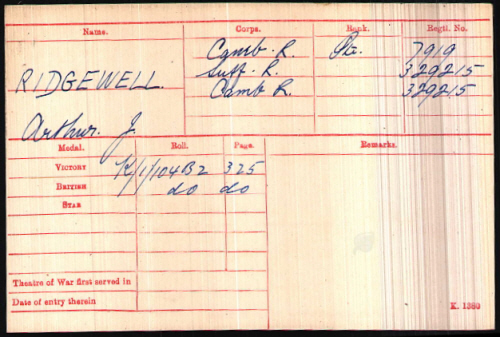 Name. Corps. Rank. Regtl. No.
RIDGEWELL Camb. R. Pte. 7919
Suff. R. 329215
Camb R. 329215
Arthur. J.
Medal. Roll. Page. Remarks.
Victory K/1/104B2 325
British do do
Star
Theatre of War first served in
Date of entry therein
K. 1380